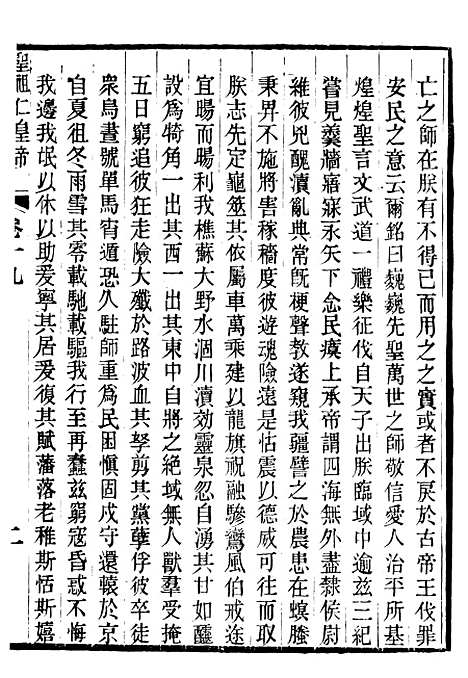 亡之師在朕有不得已而用之之實或者不戾於古帝王伐罪
安民之意云爾銘曰巍巍先聖萬世之師敬信愛人治平所基
煌煌聖言文武道一禮樂征伐自天子出朕臨域中逾兹三紀
嘗見羹牆寤寐永矢下念民瘼上承帝謂四海無外盡隸侯尉
維彼兇醜瀆亂典常旣梗聲教遂窺我疆譬之於農患在螟螣
秉畀不施將害稼穡度彼遊魂險遠是怙震以德威可往而取
朕志先定龜筮其依屬車萬乘建以龍旗祝融驂鸞風伯戒途
宜暘而暘利我樵蘇大野水涸川瀆效靈泉忽自湧其甘如醴
設爲犄角一出其西一出其東中自將之絕域無人獸羣受掩
五日窮追彼狂走險大殲於路波血其孥剪其黨孽俘彼卒徒
衆鳥晝號單馬宵遁恐久駐師重爲民困愼固戍守還轅於京
自夏徂冬雨雪其零載馳載驅我行至再蠢兹窮寇昏惑不悔
我邊我氓以休以助爰寧其居爰復其賦藩落老稚斯恬斯嬉
聖祖仁皇帝 卷十九 二